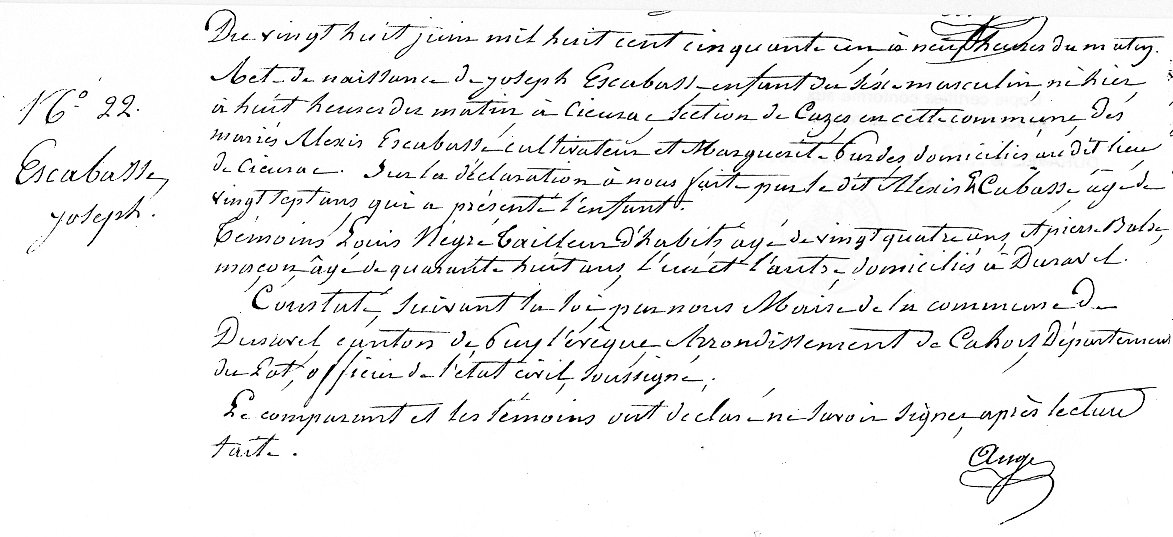 N.o 22.
Escabasse,
joseph.
Du vingt huit juin mil huit cent cinquante un, à neuf heures du matin.
Acte de naissance de joseph Escabasse enfant du séxe masculin né hier,
à huit heures du matin à Cieurac section de Cazes en cette commune, des
mariés Alexis Escabasse, cultivateur et Marguerite domiciliés au dit lieu
de Cieurac. Sur la déclaration à nous faite par le dit Alexis EsCabasse, âgé de
vingt sept ans, qui a présenté l'enfant.
Témoins Louis Nègre Tailleur d'habits, âgé de vingt quatre ans, et pierre
maçon, âgé de quarante huit ans, l'un et l'autre domiciliés à Duravel.
Constaté, suivant la loi, par nous Maire de la commune de
Duravel canton de Puy l'évêque Arrondissement de Cahors, Département
du Lot, officier de l'état civil, soussigné;
Le comparant et les témoins ont déclaré ne savoir signer, après lecture
faite.